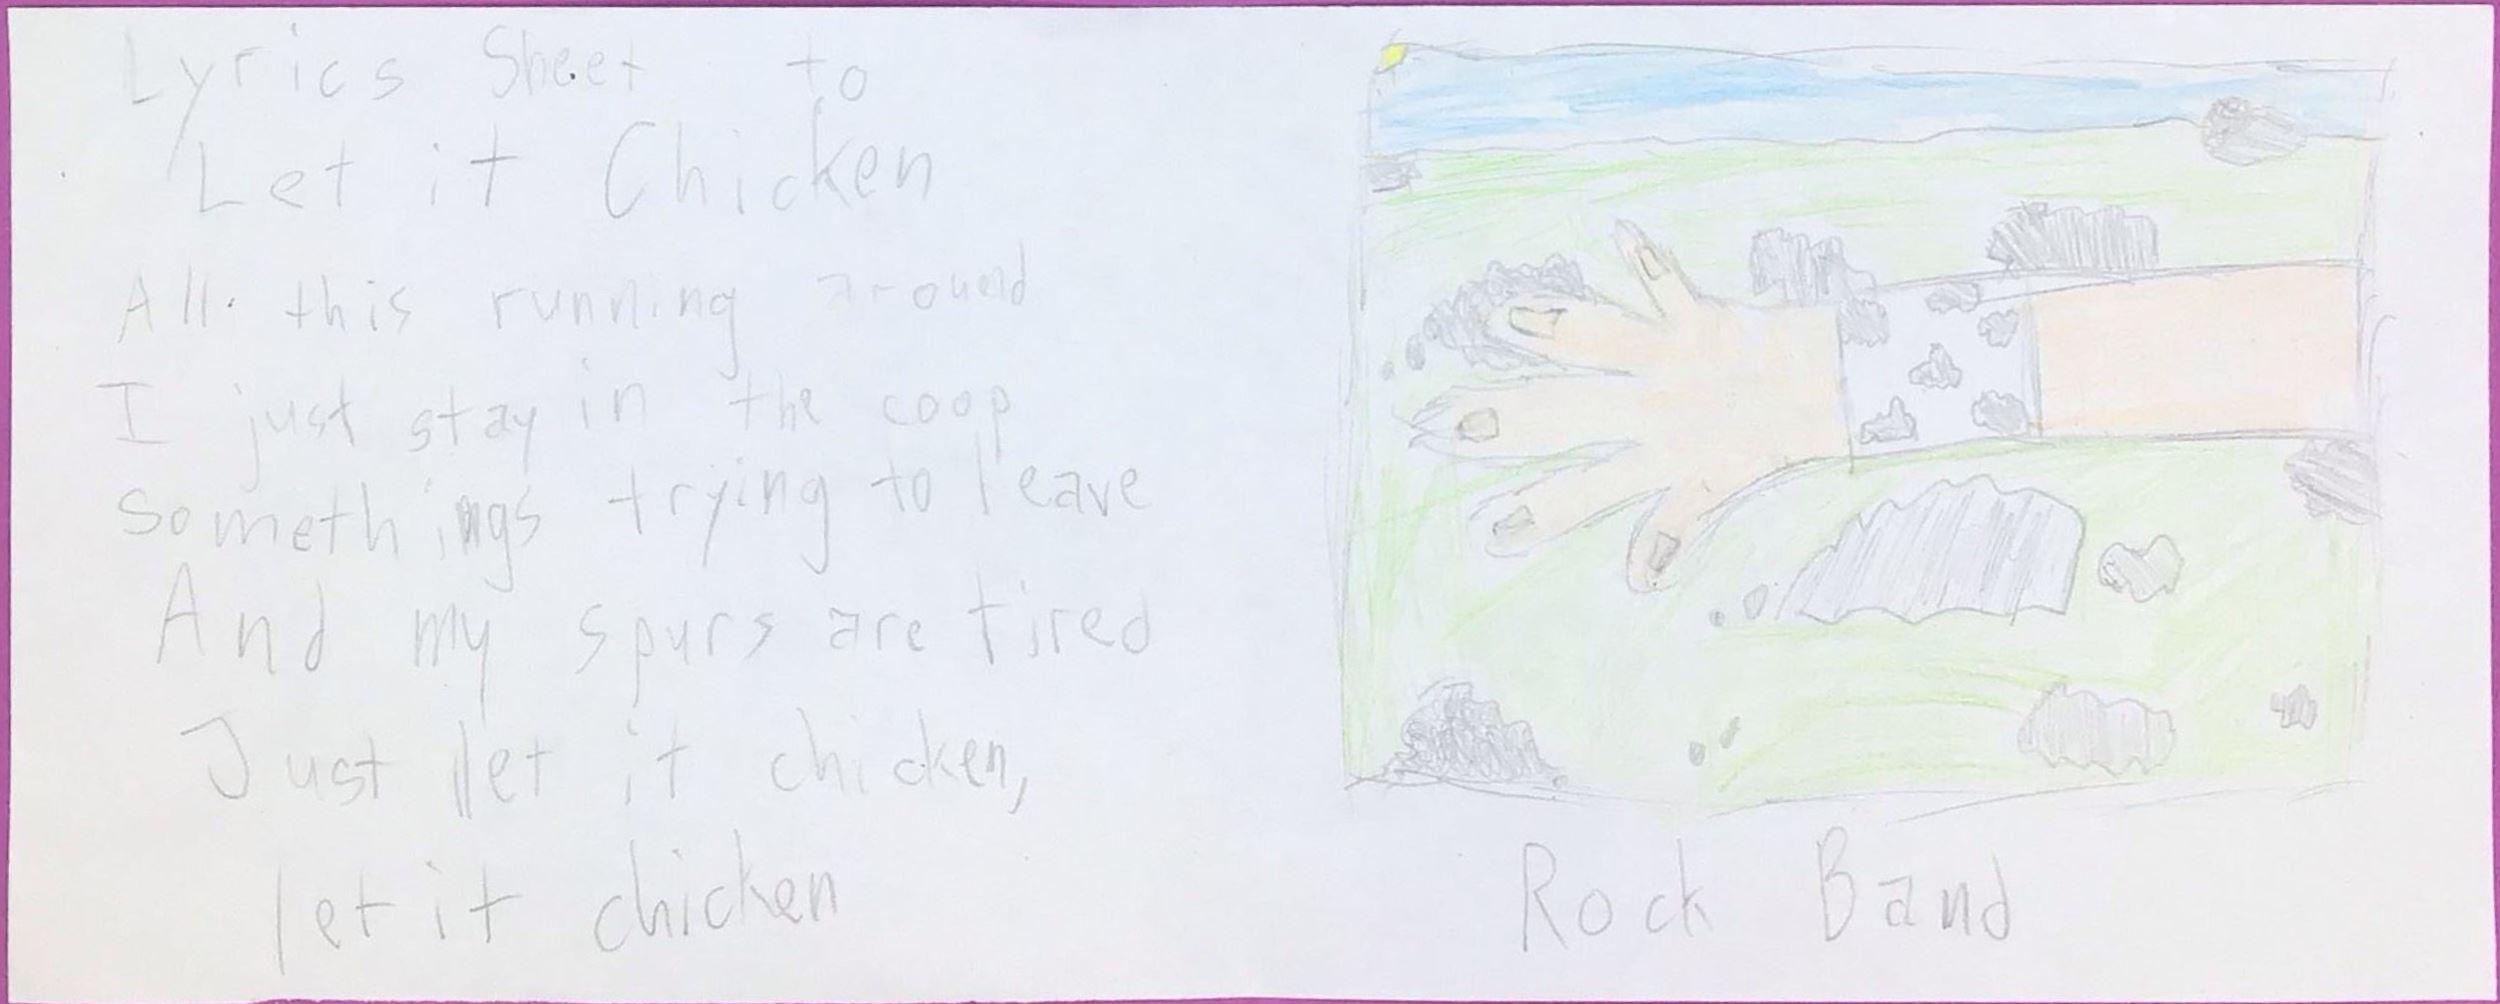 Lyrics Sheet to
Let it Chicken
All this running around
I just stay in the coop
Somethings trying to leave
And my spurs are tired
Just let it chicken,
let it chicken
Rock Band